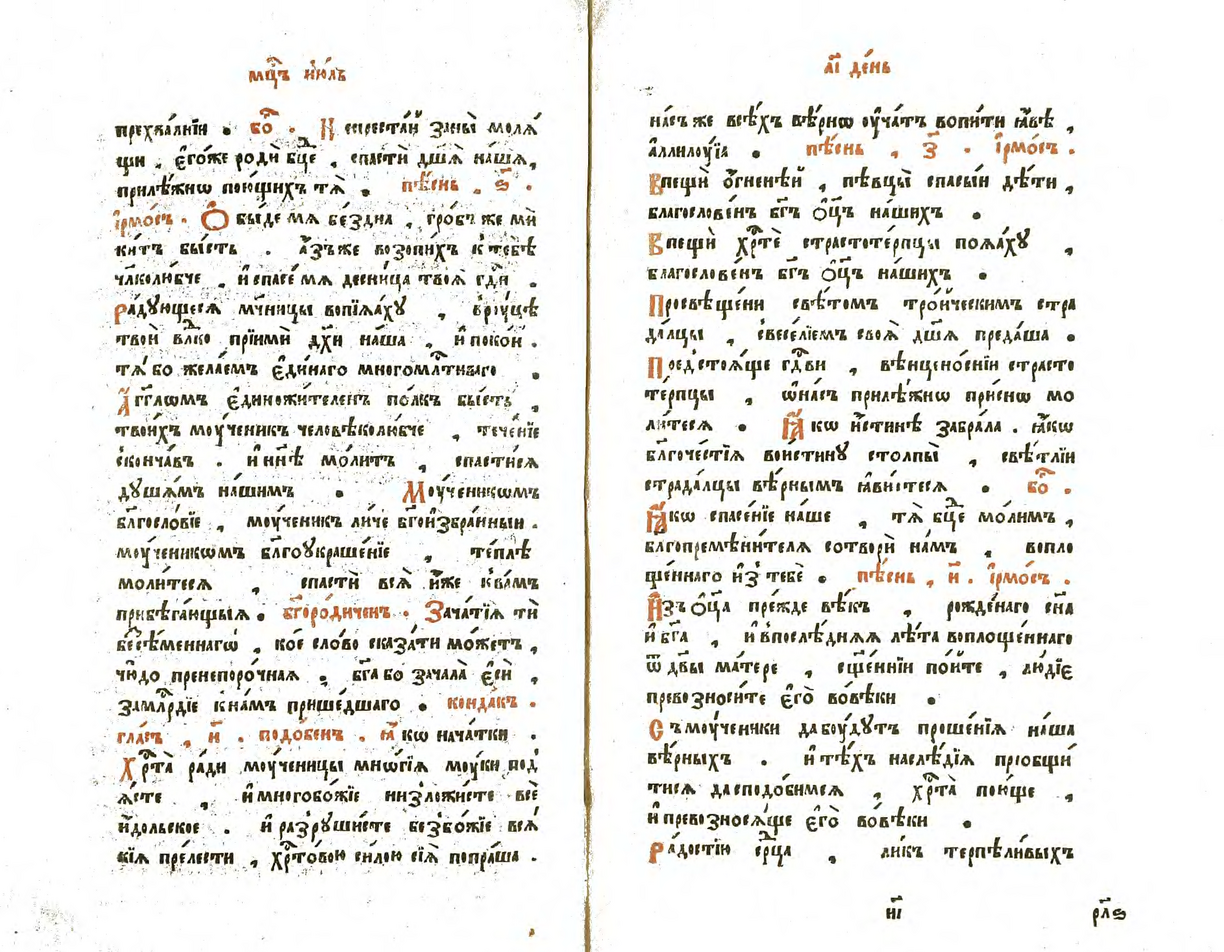 мц҃ъ и҆ю́ль
прехва́лнїи . бо҃ . Н епреста́й заны̀ моля́
щи , є҆го́же роди̂ бц҃е , спасти̂ дш҃я̀ на́шя ,
прилѣ́жнѡ пою́щихъ тя̀ . пѣ́снь , ѕ҃ .
і҆рмо́съ . Ѻ бы́де мя бе́здна , гро́бъ же мѝ
ки́тъ бы́сть . а҆́зъже возопи́хъ к тебѣ̀
чл҃колю́бче , и҆ спасе́ мя десни́ца твоя̀ гд҇и .
Ра́дующеся мч҃ницы вопїя́ху , в руцѣ̀
твоѝ влⷣко прїимѝ дх҃и на́ша , и҆ поко́и .
тя́ бо жела́емъ є҆ди́наго многомл҇тиваго .
А҆́гг҃лѡмъ є҆диножи́теленъ по́лкъ бы́сть ,
твои́хъ моу́ченикъ человѣколю́бче , тече́нїе
сконча́въ . и҆ нн҃ѣ мо́литъ , спасти́ся
душя́мъ на́шимъ . Моу́ченикѡмъ
бл҃госло́вїе , моу́ченикъ ли́че бг҃оизбра́нныи .
моу́ченикѡмъ бл҃гоукраше́нїе , те́плѣ
моли́теся , спастѝ вся̀ и҆́же к ва́мъ
прибѣга́ющыія . бг҃оро́диченъ . Зача́тїя тѝ
бесѣ́меннагѡ , ко́е сло́во сказа́ти мо́жетъ ,
чю́до пренепоро́чная . бг҃а бо зачала̀ є҆сѝ ,
замл҇рдїе к на́мъ прише́дшаго . конда́къ .
гла́съ , и҃ . подо́бенъ . ꙗ҆́ кѡ нача́тки .
Хрⷭ҇та̀ ра́ди моу́ченицы мнѡ́гїя моу́ки под
я́сте , и҆ многобо́жїе низложи́сте всѐ
и҆́дольское . и҆ разруши́сте безбо́жїе вся́
кїя пре́лести , хрⷭ҇то́вою си́лою сїя̀ попра́ша .
а҃і де́нь
на́съ же всѣ́хъ вѣ́рнѡ оу҆ча́тъ вопи́ти ꙗ҆́вѣ ,
а҆ллилоу́їа . пѣ́снь , з҃ . і҆рмо́съ .
В пещѝ ѻ҆́гненѣй , пѣвцы̀ спасы́й дѣ́ти ,
благослове́нъ бг҃ъ ѻ҆ц҃ъ на́шихъ .
В пещѝ хрⷭ҇тѐ страстоте́рпцы поя́ху ,
благослове́нъ бг҃ъ ѻ҆ц҃ъ на́шихъ .
Просвѣще́ни свѣ́томъ тро́ическимъ стра
да́лцы , свесе́лїемъ своя̀ дш҃я̀ преда́ша .
Предстоя́ще гдⷭ҇ви , вѣнцено́снїи страсто
те́рпцы , ѡ҆на́съ прилѣ́жнѡ при́снѡ мо
ли́теся . Ꙗ҆́ кѡ и҆́стинѣ забра́ла . ꙗ҆́кѡ
бл҃гоче́стїя вои́стину столпы̀ , свѣ́тлїи
страда́лцы вѣ́рнымъ ꙗ҆ви́стеся . бо҃ .
Ꙗ҆́кѡ спасе́нїе на́ше , тя̀ бц҃е мо́лимъ ,
бл҃гопремѣни́теля сотворѝ на́мъ , вопло
ще́ннаго и҆з̾ тебѐ . пѣ́снь , и҃ . і҆рмо́съ .
И҆зъ ѻ҆ц҃а пре́жде вѣ́къ , рожде́наго сн҃а
и҆ бг҃а , и҆ впослѣ́дняя лѣ́та воплоще́ннаго
ѿ дв҃ы ма́тере , сщ҃е́ннїи по́йте , лю́дїе
превозноси́те є҆го̀ во́вѣки .
С ъмоу́ченики да боу́дутъ проше́нїя на́ша
вѣ́рныхъ . и҆ тѣ́хъ наслѣ́дїя прїобщи́
тися да сподо́бимся , хрⷭ҇та̀ пою́ще ,
и҆ превознося́ще є҆го̀ во́вѣки .
Ра́достїю срⷣца , ли́къ терпѣли́выхъ
н҃і
рл҃ѕ